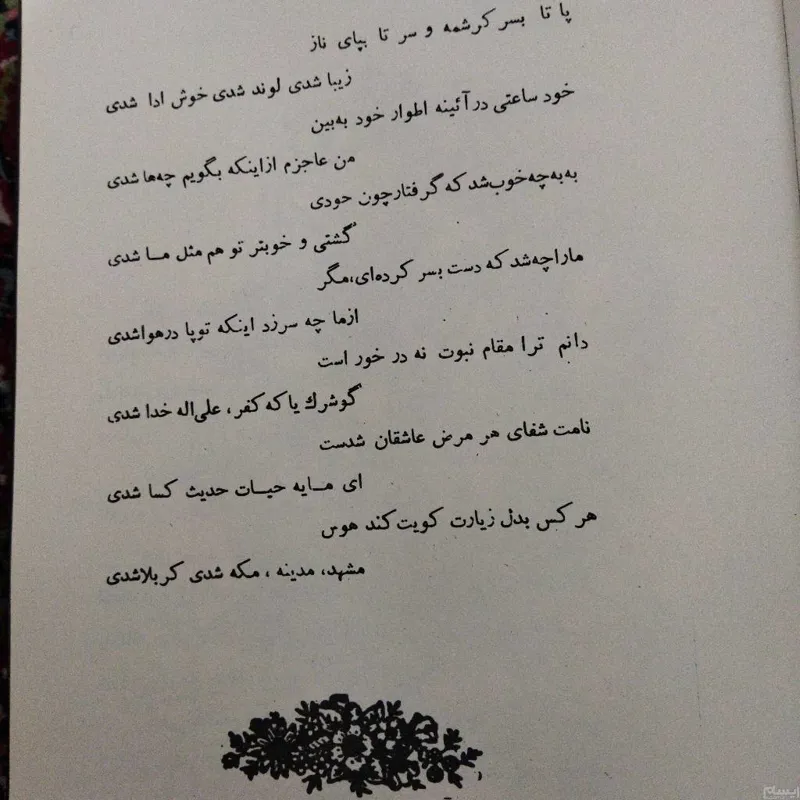 پا تا بسر کرشمه و سر تا بپای ناز
زیبا شدی لوند شدی خوش ادا شدی
خود ساعتی در آئینه اطوار خود به‌بین
من عاجزم از اینکه بگویم چه‌ها شدی
به‌به چه خوب شد که گرفتار چون خودی
گشتی و خوبتر تو هم مثل مـا شدی
ما را چه‌شد که دست بسر کرده‌ای، مگر
از ما چه سر زد اینکه تو پا در هوا شدی
دانم ترا مقام نبوت نه در خور است
گو شرك یا که کفر، علی‌اله خدا شدی
نامت شفای هر مرض عاشقان شدست
ای مـایه حیـات حدیث کسا شدی
هر کس بدل زیارت کویت کند هوس
مشهد، مدینه، مکه شدی کربلا شدی
ایسام